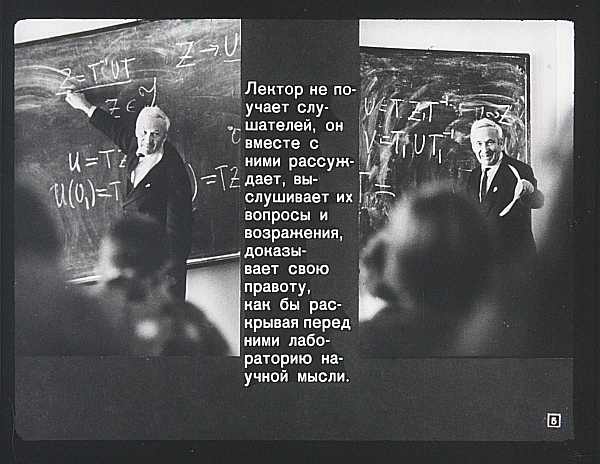 Z = T⁻¹UT
Z → U
Z ∈
U = T Z
U(O₁) = T
) = TZ
Лектор не по-
учает слу-
шателей, он
вместе с
ними рассуж-
дает, вы-
слушивает их
вопросы и
возражения,
доказы-
вает свою
правоту,
как бы рас-
крывая перед
ними лабо-
раторию на-
учной мысли.
V = T₁Z₁T⁻¹
V = T₁UT₁⁻¹
5